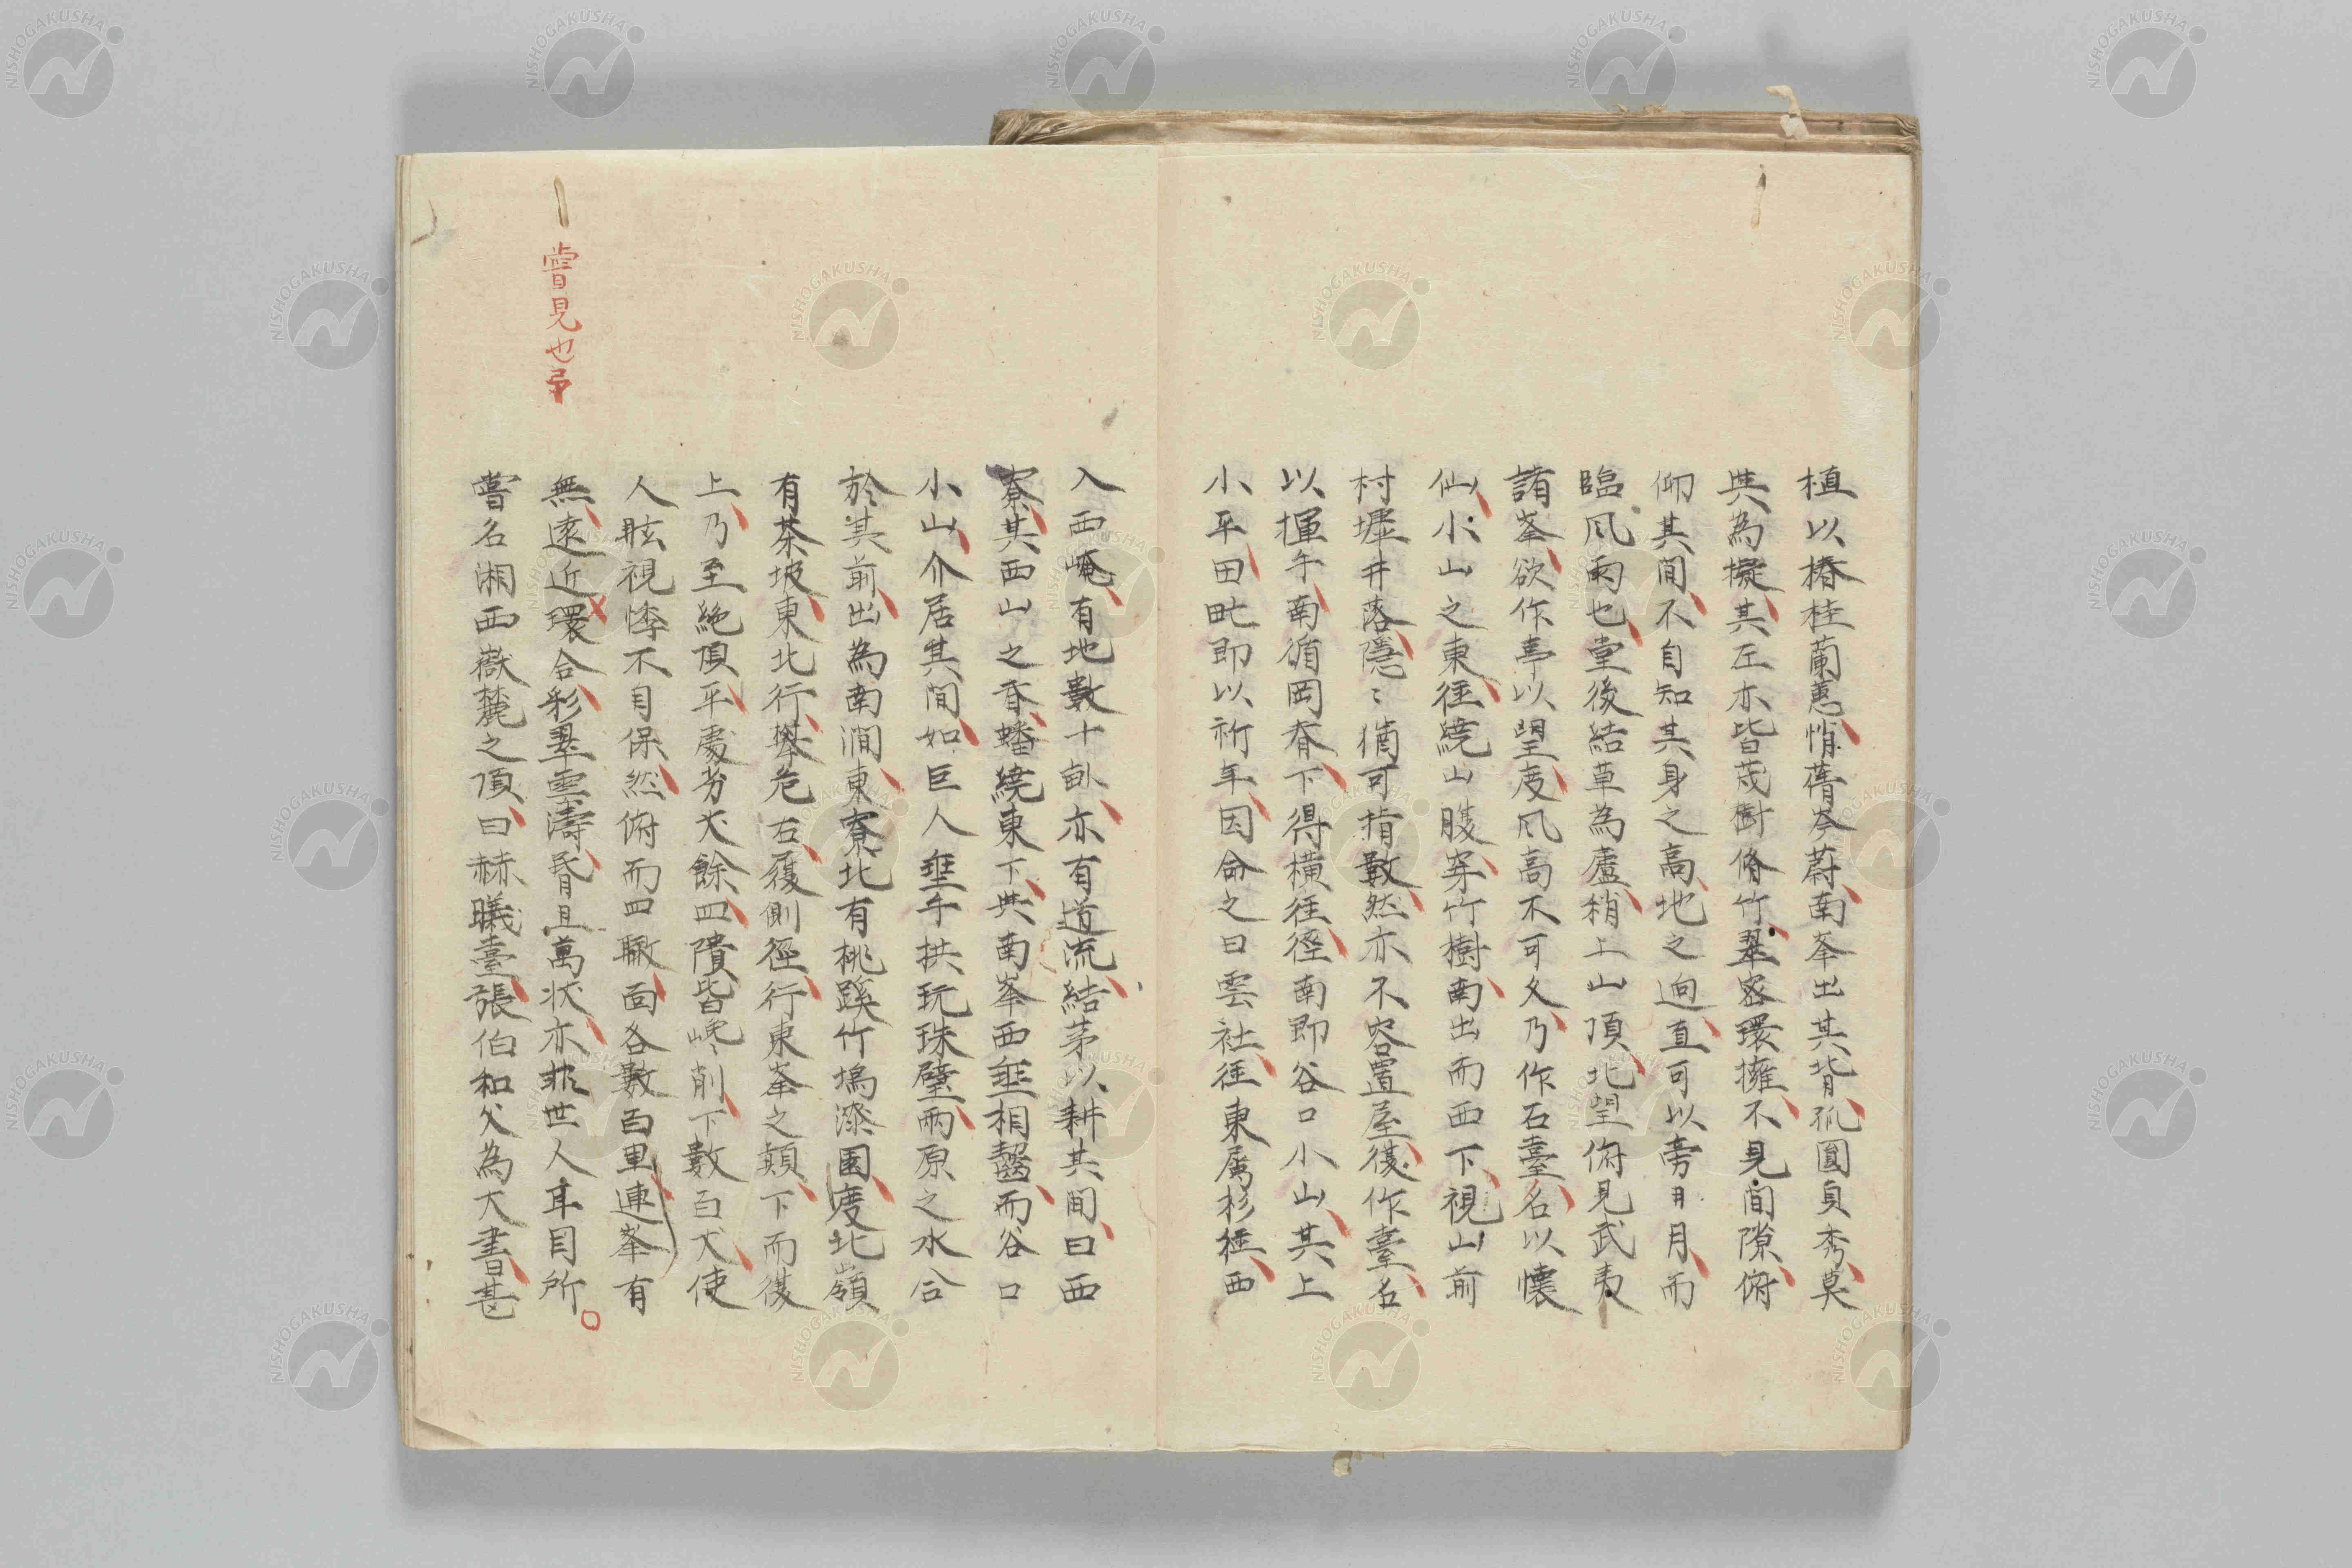 植以椿桂蘭蕙悄蒨岑蔚南峯出其背孤圓貞秀莫
與為擬其左亦皆茂樹脩竹翠密環擁不見間隙俯
仰其間不自知其身之高地之逈直可以旁日月而
臨風雨也堂後結草為廬稍上山頂北望俯見武夷
諸峯欲作亭以望度風高不可久乃作石臺名以懷
仙小山之東徑繞山腹穿竹樹南出而西下視山前
村墟井落隱〻猶可指數然亦不容置屋復作臺名
以揮手南循岡脊下得橫徑徑南即谷口小山其上
小平田甿即以祈年因命之曰雲社徑東屬杉徑西
入西崦有地數十畝亦有道流結茅以耕其間曰西
寮其西山之脊蟠繞東下與南峯西垂相齧而谷口
小山介居其間如巨人垂手拱玩珠璧兩原之水合
於其前出為南澗東寮北有桃蹊竹塢漆園度北嶺
有茶坡東北行攀危石履側徑行東峯之顛下而復
上乃至絕頂平處劣丈餘四隤皆巉削下數百丈使
人眩視悸不自保然俯而四瞰面各數百里連峯有
嘗見也予
無遠近環合彩翠雲濤昏旦萬狀亦非世人耳目所
嘗名湘西嶽麓之頂曰赫曦臺張伯和父為大書甚
NISHOGAKUSHA